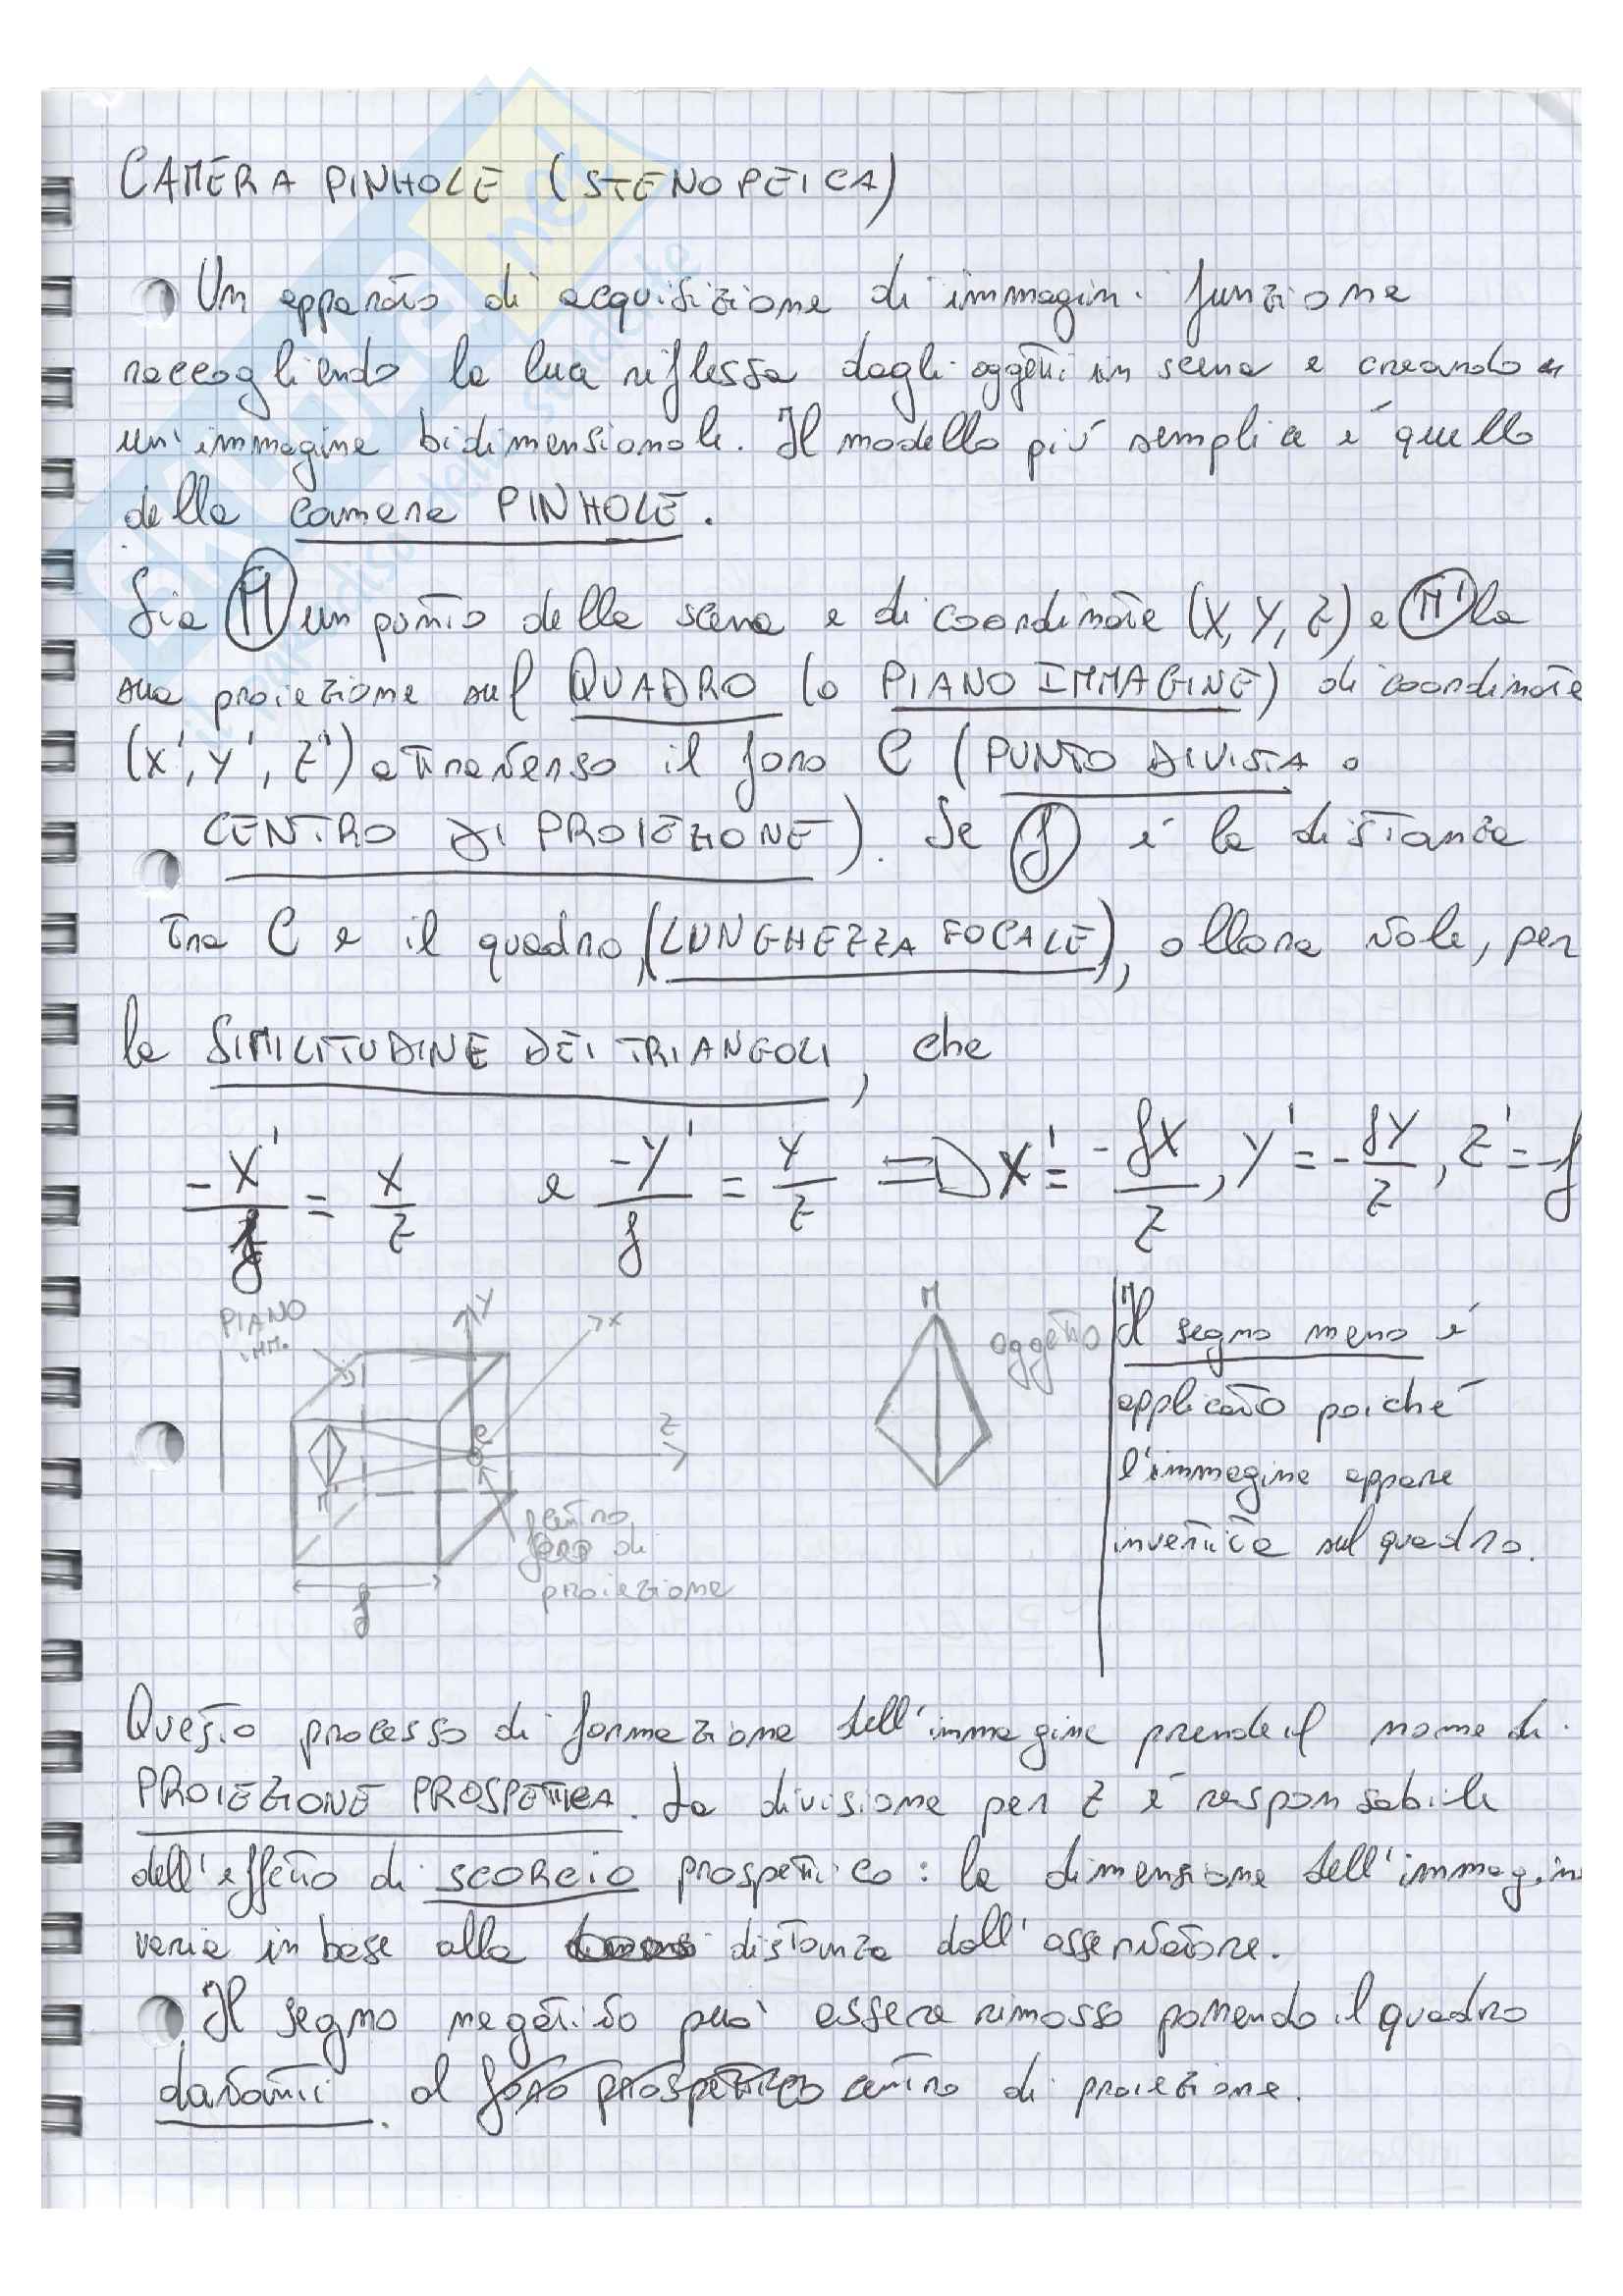 CAMERA PINHOLE (STENOPEICA)
Un apparato di acquisizione di immagini funziona
raccogliendo la luce riflessa dagli oggetti in scena e creando
un'immagine bidimensionale. Il modello più semplice è quello
della camera PINHOLE.
Sia M un punto della scena e di coordinate (X, Y, Z) e M' la
sua proiezione sul QUADRO (o PIANO IMMAGINE) di coordinate
(X', Y', Z') attraverso il foro C (PUNTO DI VISTA o
CENTRO DI PROIEZIONE). Se f è la distanza
tra C e il quadro, (LUNGHEZZA FOCALE), allora vale, per
la SIMILITUDINE DEI TRIANGOLI, che
-X'/f = X/Z e -Y'/f = Y/Z => X' = -fX/Z, Y' = -fY/Z, Z' = -f
PIANO
IMM.
Y
X
Z
C
M'
f
centro
foro di
proiezione
M
oggetto
Il segno meno è
applicato poiché
l'immagine appare
invertita sul quadro.
Questo processo di formazione dell'immagine prende il nome di
PROIEZIONE PROSPETTICA. La divisione per Z è responsabile
dell'effetto di SCORCIO prospettico: la dimensione dell'immagine
varia in base alla distanza dall'osservatore.
Il segno negativo può essere rimosso ponendo il quadro
davanti al foro prospettico centro di proiezione.